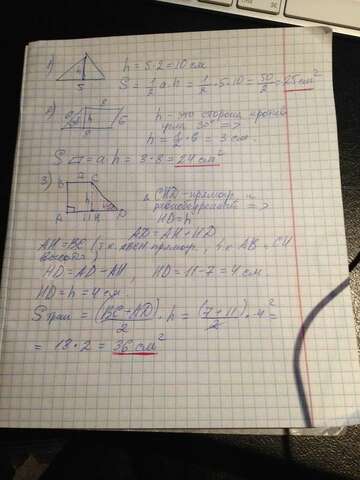 1) h = 5·2 = 10 см
h
5
S = 1/2 a h = 1/2 · 5·10 = 50/2 = 25 см²
2) 8
h - это сторона против
h
6
угла 30° =>
8
h = 1/2 · 6 = 3 см.
S = a·h = 3·8 = 24 см²
3) B 7 C
△ CHD - прямоуг
равнобедренный =>
h
HD = h
A 11 H D
AD = AH + HD
AH = BC (т.к. ABCH прямоуг, т.к. AB и CH
высоты)
HD = AD - AH, HD = 11 - 7 = 4 см.
HD = h = 4 см.
S трап = (BC + AD)/2 · h = (7 + 11)/2 · 4² =
= 18·2 = 36 см²